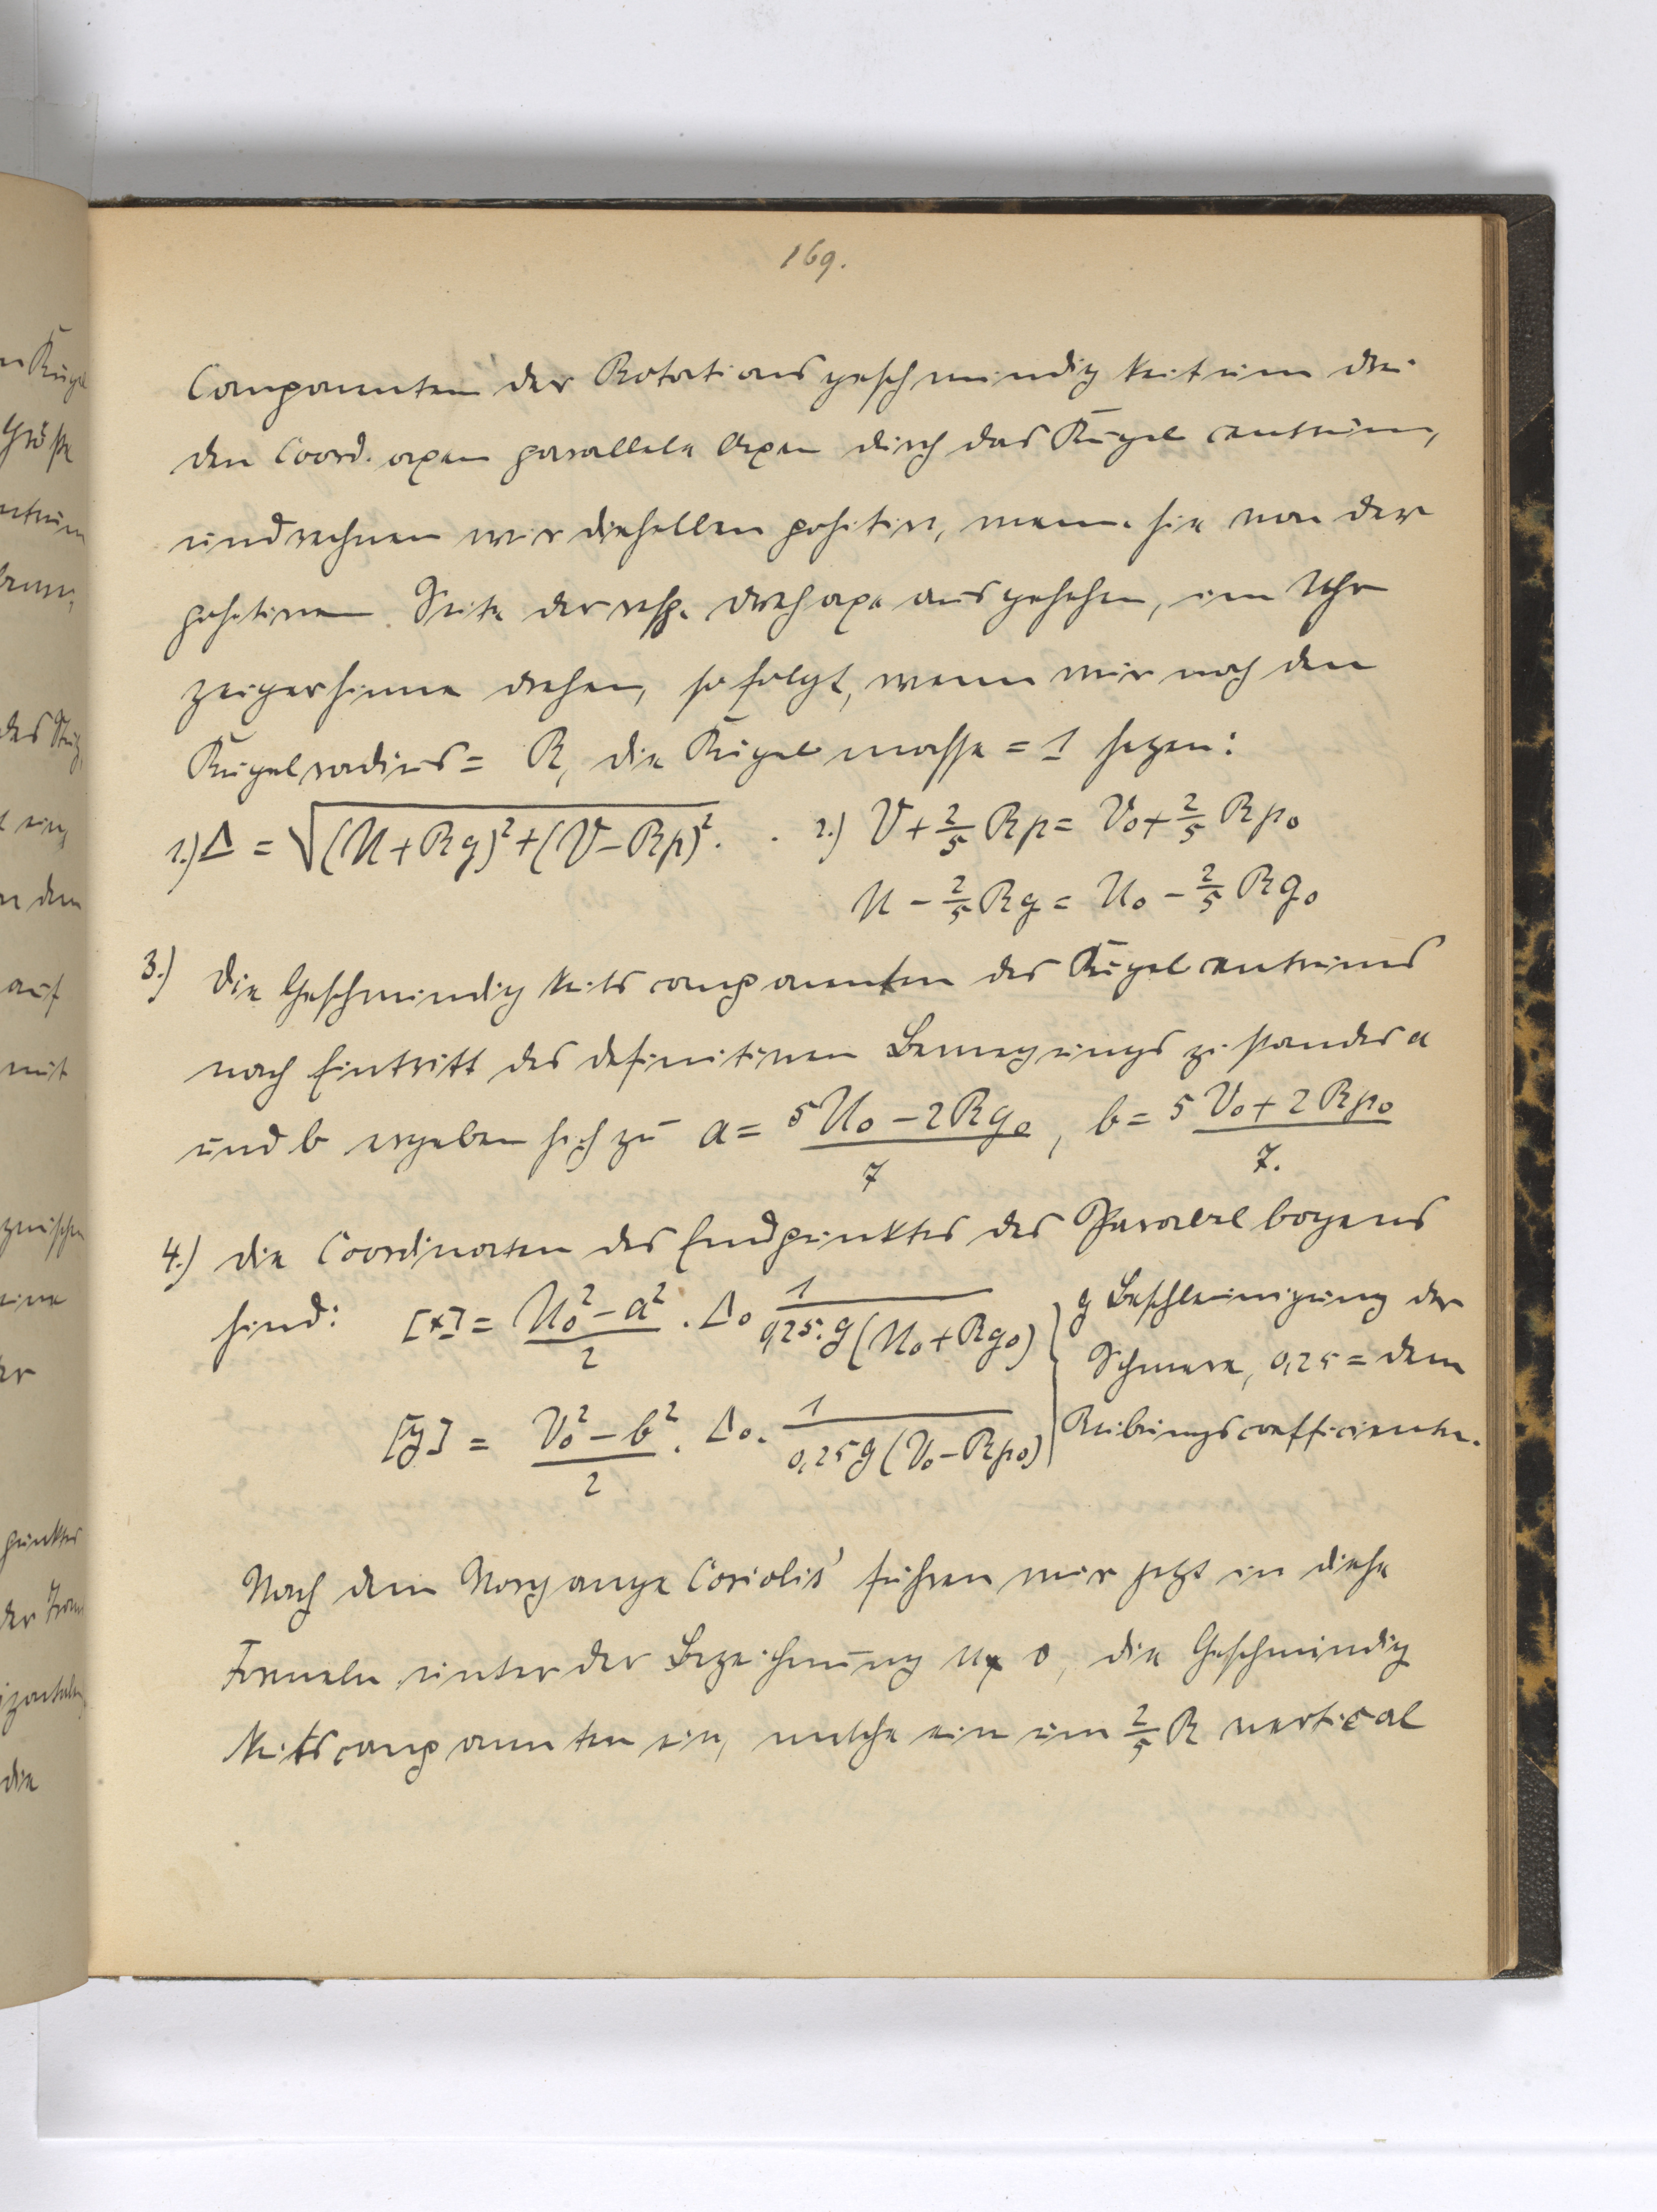 169.
Componenten der Rotationsgeschwindigkeit um drei
den Coord. axen parallele Axen durch das Kugelcentrum,
und rechnen wir dieselben positiv, wenn sie von der
positiven Seite der resp. Drehaxe aus gesehen, im Uhr
zeigersinne drehen, so folgt, wenn wir noch den
Kugelradius = R, die Kugelmasse = 1 setzen:
1.) Δ = √(U + Rq)² + (V – Rp)². . 2.) V + 2/5 Rp = V₀ + 2/5 Rp₀
U – 2/5 Rq = U₀ – 2/5 Rq₀
3.) Die Geschwindigkeitscomponenten des Kugelcentrums
nach Eintritt des definitiven Bewegungszustandes a
und b ergeben sich zu a = (5U₀ – 2Rq₀)/7, b = (5V₀ + 2Rp₀)/7.
4.) die Coordinaten des Endpunktes des Parabelbogens
sind: [x] = (U₀² – a²)/2 . Δ₀ 1/(0,25.g(U₀ + Rq₀)) g Beschleunigung der
Schwere, 0,25 = dem
[y] = (V₀² – b²)/2 . Δ₀. 1/(0,25g(V₀ – Rp₀)) Reibungscoefficienten.
Nach dem Vorgange Coriolis' führen wir jetzt in diese
Formeln unter der Bezeichnung u, v, die Geschwindig
keitscomponenten ein, welche ein um 2/5 R vertical